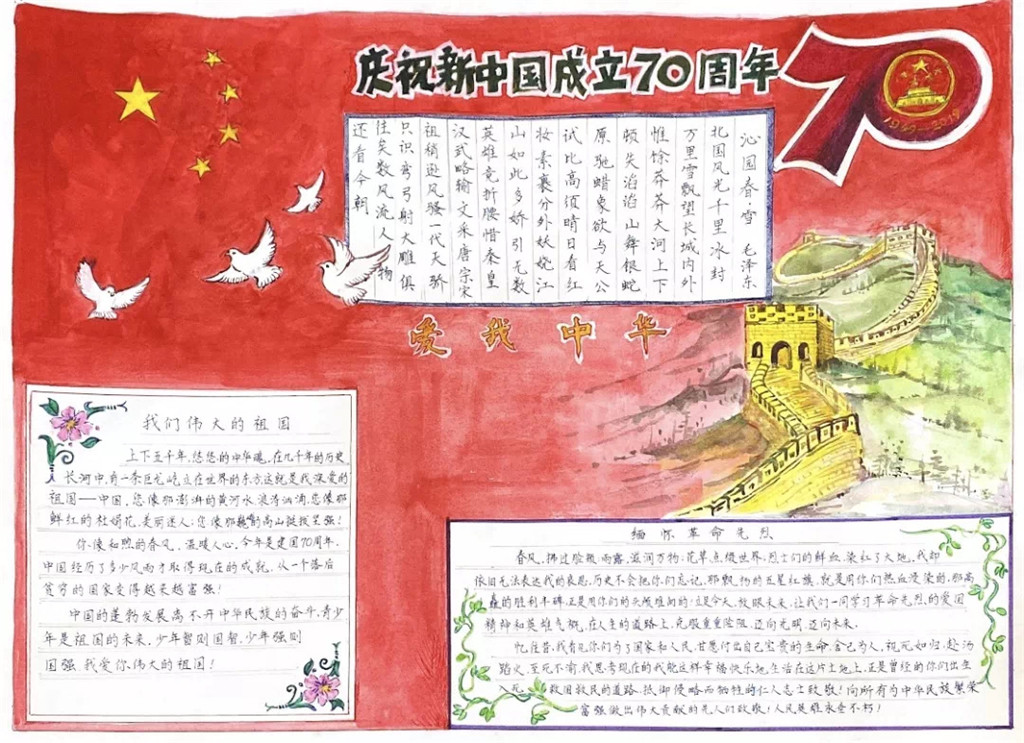 庆祝新中国成立70周年
70
1949—2019
沁园春·雪 毛泽东
北国风光千里冰封
万里雪飘望长城内外
惟馀莽莽大河上下
顿失滔滔山舞银蛇
原驰蜡象欲与天公
试比高须晴日看红
妆素裹分外妖娆江
山如此多娇引无数
英雄竞折腰惜秦皇
汉武略输文采唐宗宋
祖稍逊风骚一代天骄
只识弯弓射大雕俱
往矣数风流人物
还看今朝
爱我中华
我们伟大的祖国
上下五千年,悠悠的中华魂,在几千年的历史
长河中,有一条巨龙屹立在世界的东方这就是我深爱的
祖国——中国,您像那澎湃的黄河水浪涛汹涌,您像那
鲜红的杜娟花,美丽迷人;您像那巍巍的高山挺拔呈强!
你像和煦的春风,温暖人心,今年是建国70周年,
中国经历了多少风雨才取得现在的成就,从一个落后
贫穷的国家变得越来越富强!
中国的蓬勃发展离不开中华民族的奋斗,青少
年是祖国的未来,少年智则国智,少年强则
国强,我爱你,伟大的祖国!
缅怀革命先烈
春风,拂过脸颊,雨露,滋润万物;花草点缀世界,烈士们的鲜血,染红了大地,我却
依旧无法表达我的哀思,历史不会把你们忘记,那飘扬的五星红旗,就是用你们热血浸染的,那高
矗的胜利丰碑,正是用你们的头颅堆向的!立足今天,放眼未来,让我们一同学习革命先烈的爱国
精神和英雄气概,在人生的道路上,克服重重险阻,迈向光明,迈向未来。
忆往昔,我看见你们为了国家和人民,甘愿付出自己宝贵的生命,舍己为人,视死如归,赴汤
蹈火,至死不渝,我思考现在的我能这样幸福快乐地生活在这片土地上,正是曾经的你们出生
入死,救国救民的道路,抵御侵略而牺牲的仁人志士致敬!向所有为中华民族繁荣
富强做出伟大贡献的先人们致敬!人民英雄永垂不朽!